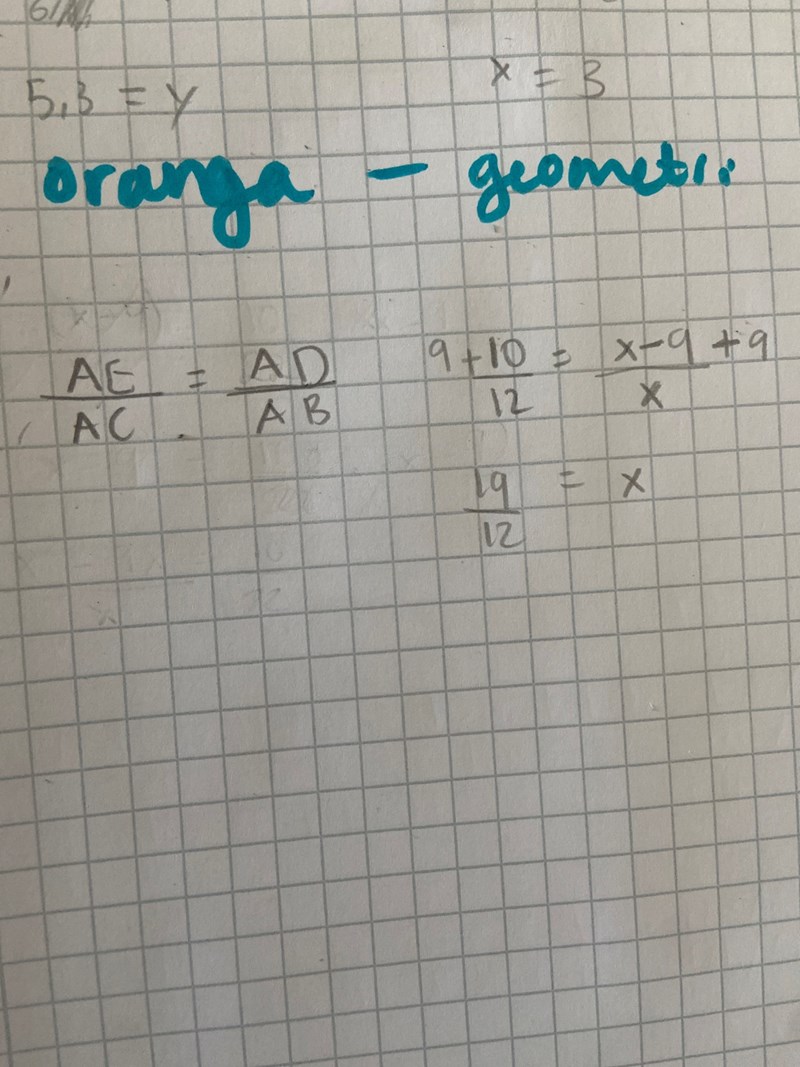 5,3 = y x = 3
oranga - geometri
AE/AC = AD/AB 9+10/12 = x-9+9/x
19/12 = x